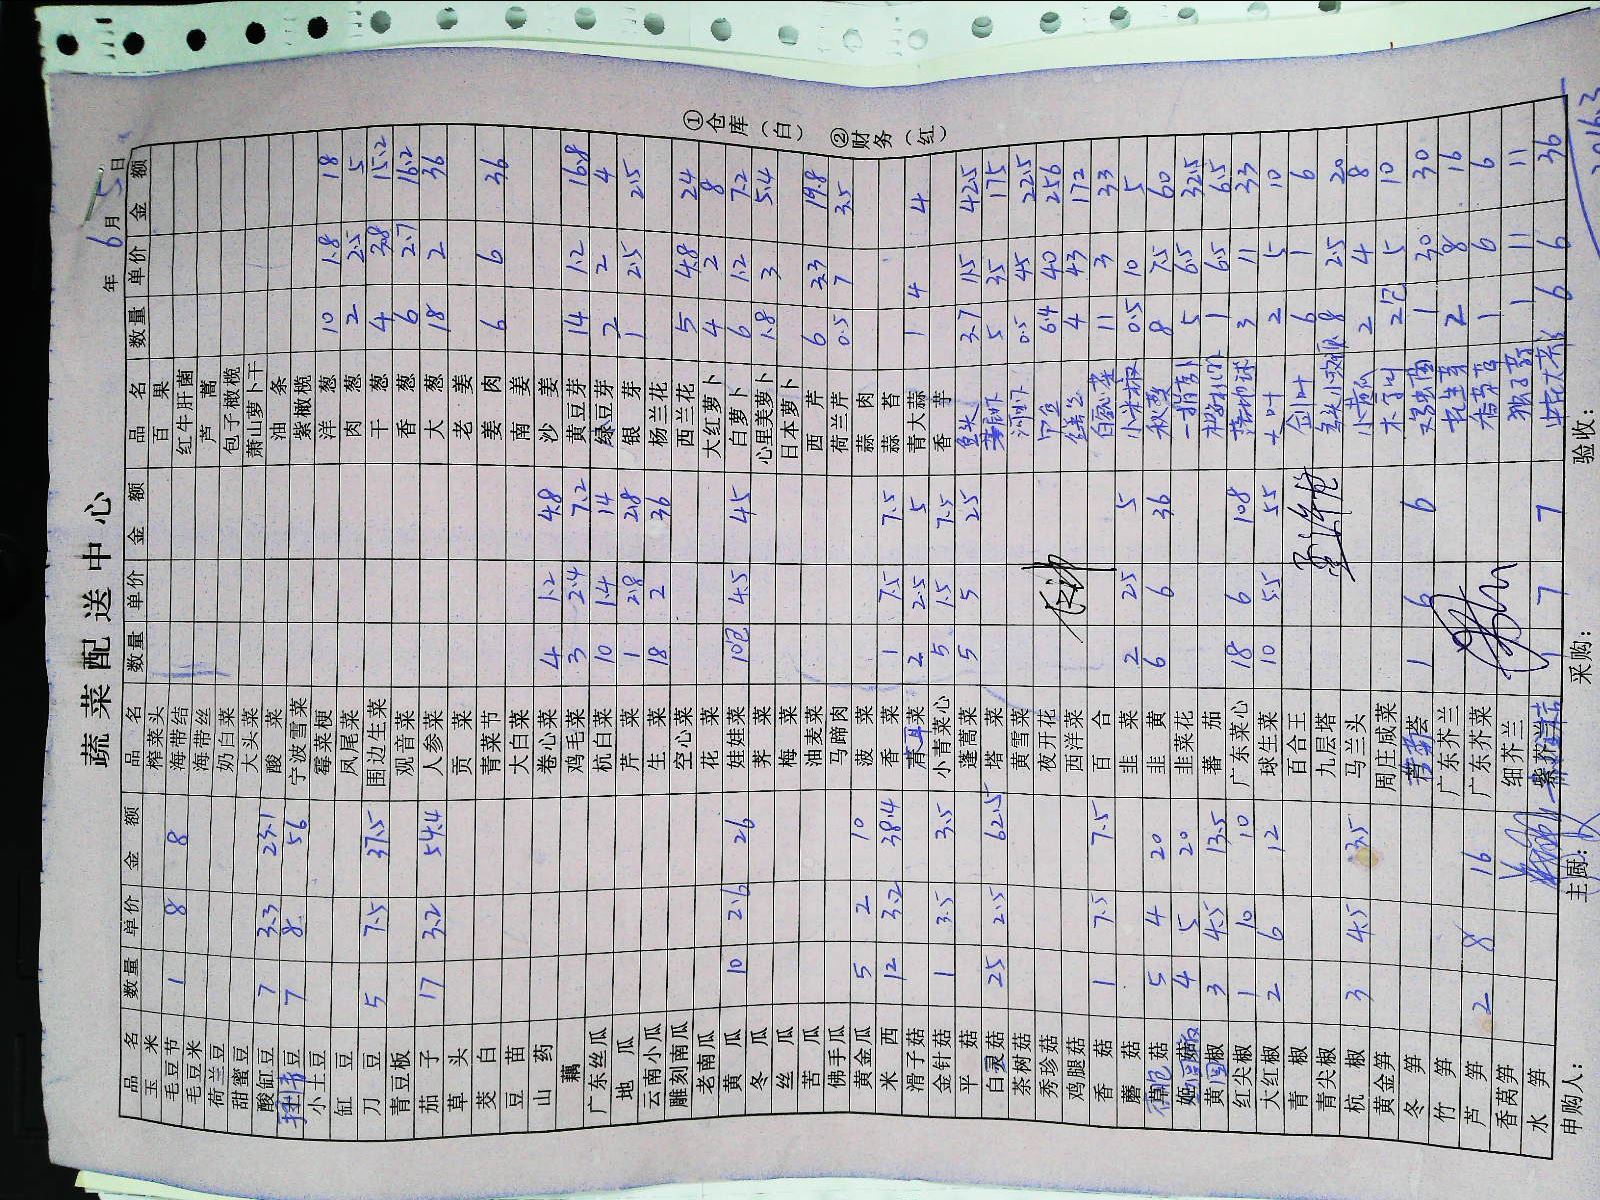 蔬菜配送中心
年 6 月 5 日
品名 数量 单价 金额 品名 数量 单价 金额 品名 数量 单价 金额
玉米 榨菜头 百果
毛豆节 1 8 8 海带结 红牛肝菌
毛豆米 海带丝 芦蒿
荷兰豆 奶白菜 包子橄榄
甜蜜豆 大头菜 萧山萝卜干
酸缸豆 7 3.3 23.1 酸菜 油条
7 8 56 宁波雪菜 紫橄榄
小土豆 霉菜梗 洋葱 10 1.8 18
缸豆 凤尾菜 肉葱 2 2.5 5
刀豆 5 7.5 37.5 围边生菜 干葱 4 3.8 15.2
青豆板 观音菜 香葱 6 2.7 16.2
茄子 17 3.2 54.4 人参菜 大葱 18 2 36
草头 贡菜 老姜
茭白 青菜节 姜肉 6 6 36
豆苗 大白菜 南姜
山药 卷心菜 4 1.2 4.8 沙姜
藕 鸡毛菜 3 2.4 7.2 黄豆芽 14 1.2 16.8
广东丝瓜 杭白菜 10 1.4 14 绿豆芽 2 2 4
地瓜 芹菜 1 2.8 2.8 银芽 1 2.5 2.5
云南小瓜 生菜 18 2 36 杨兰花
雕刻南瓜 空心菜 西兰花 5 4.8 24
老南瓜 花菜 大红萝卜 4 2 8
黄瓜 10 2.6 26 娃娃菜 10包 4.5 45 白萝卜 6 1.2 7.2
冬瓜 荠菜 心里美萝卜 1.8 3 5.4
丝瓜 梅菜 日本萝卜
苦瓜 油麦菜 西芹 6 3.3 19.8
佛手瓜 马碲肉 荷兰芹 0.5 7 3.5
黄金瓜 5 2 10 菠菜 蒜肉
米西 12 3.2 38.4 香菜 1 7.5 7.5 蒜苔
滑子菇 青菜 2 2.5 5 青大蒜 1 4 4
金针菇 1 3.5 3.5 小青菜心 5 1.5 7.5 香芋
平菇 蓬蒿菜 5 5 25 鱼头 3.7 11.5 42.5
白灵菇 25 2.5 62.5 塔菜 5 35 175
茶树菇 黄雪菜 河虾 0.5 45 22.5
秀珍菇 夜开花 6.4 40 256
鸡腿菇 西洋菜 4 43 172
香菇 1 7.5 7.5 百合 11 3 33
蘑菇 韭菜 2 2.5 5 小米椒 0.5 10 5
草菇 5 4 20 韭黄 6 6 36 秋葵 8 7.5 60
4 5 20 韭菜花 5 6.5 32.5
黄圆椒 3 4.5 13.5 蕃茄 1 6.5 6.5
红尖椒 1 10 10 广东菜心 18 6 108 3 11 33
大红椒 2 6 12 球生菜 10 5.5 55 2 5 10
青椒 百合王 剑叶 6 1 6
青尖椒 九层塔 8 2.5 20
杭椒 3 4.5 13.5 马兰头 小黄瓜 2 4 8
黄金笋 周庄咸菜 2包 5 10
冬笋 芦荟 1 6 6 1 30 30
竹笋 广东芥兰 花生芽 2 8 16
芦笋 2 8 16 广东芥菜 1 6 6
香莴笋 细芥兰 1 11 11
水笋 1 7 7 6 6 36
申购人： 主厨： 采购： 验收：
①仓库（白） ②财务（红）